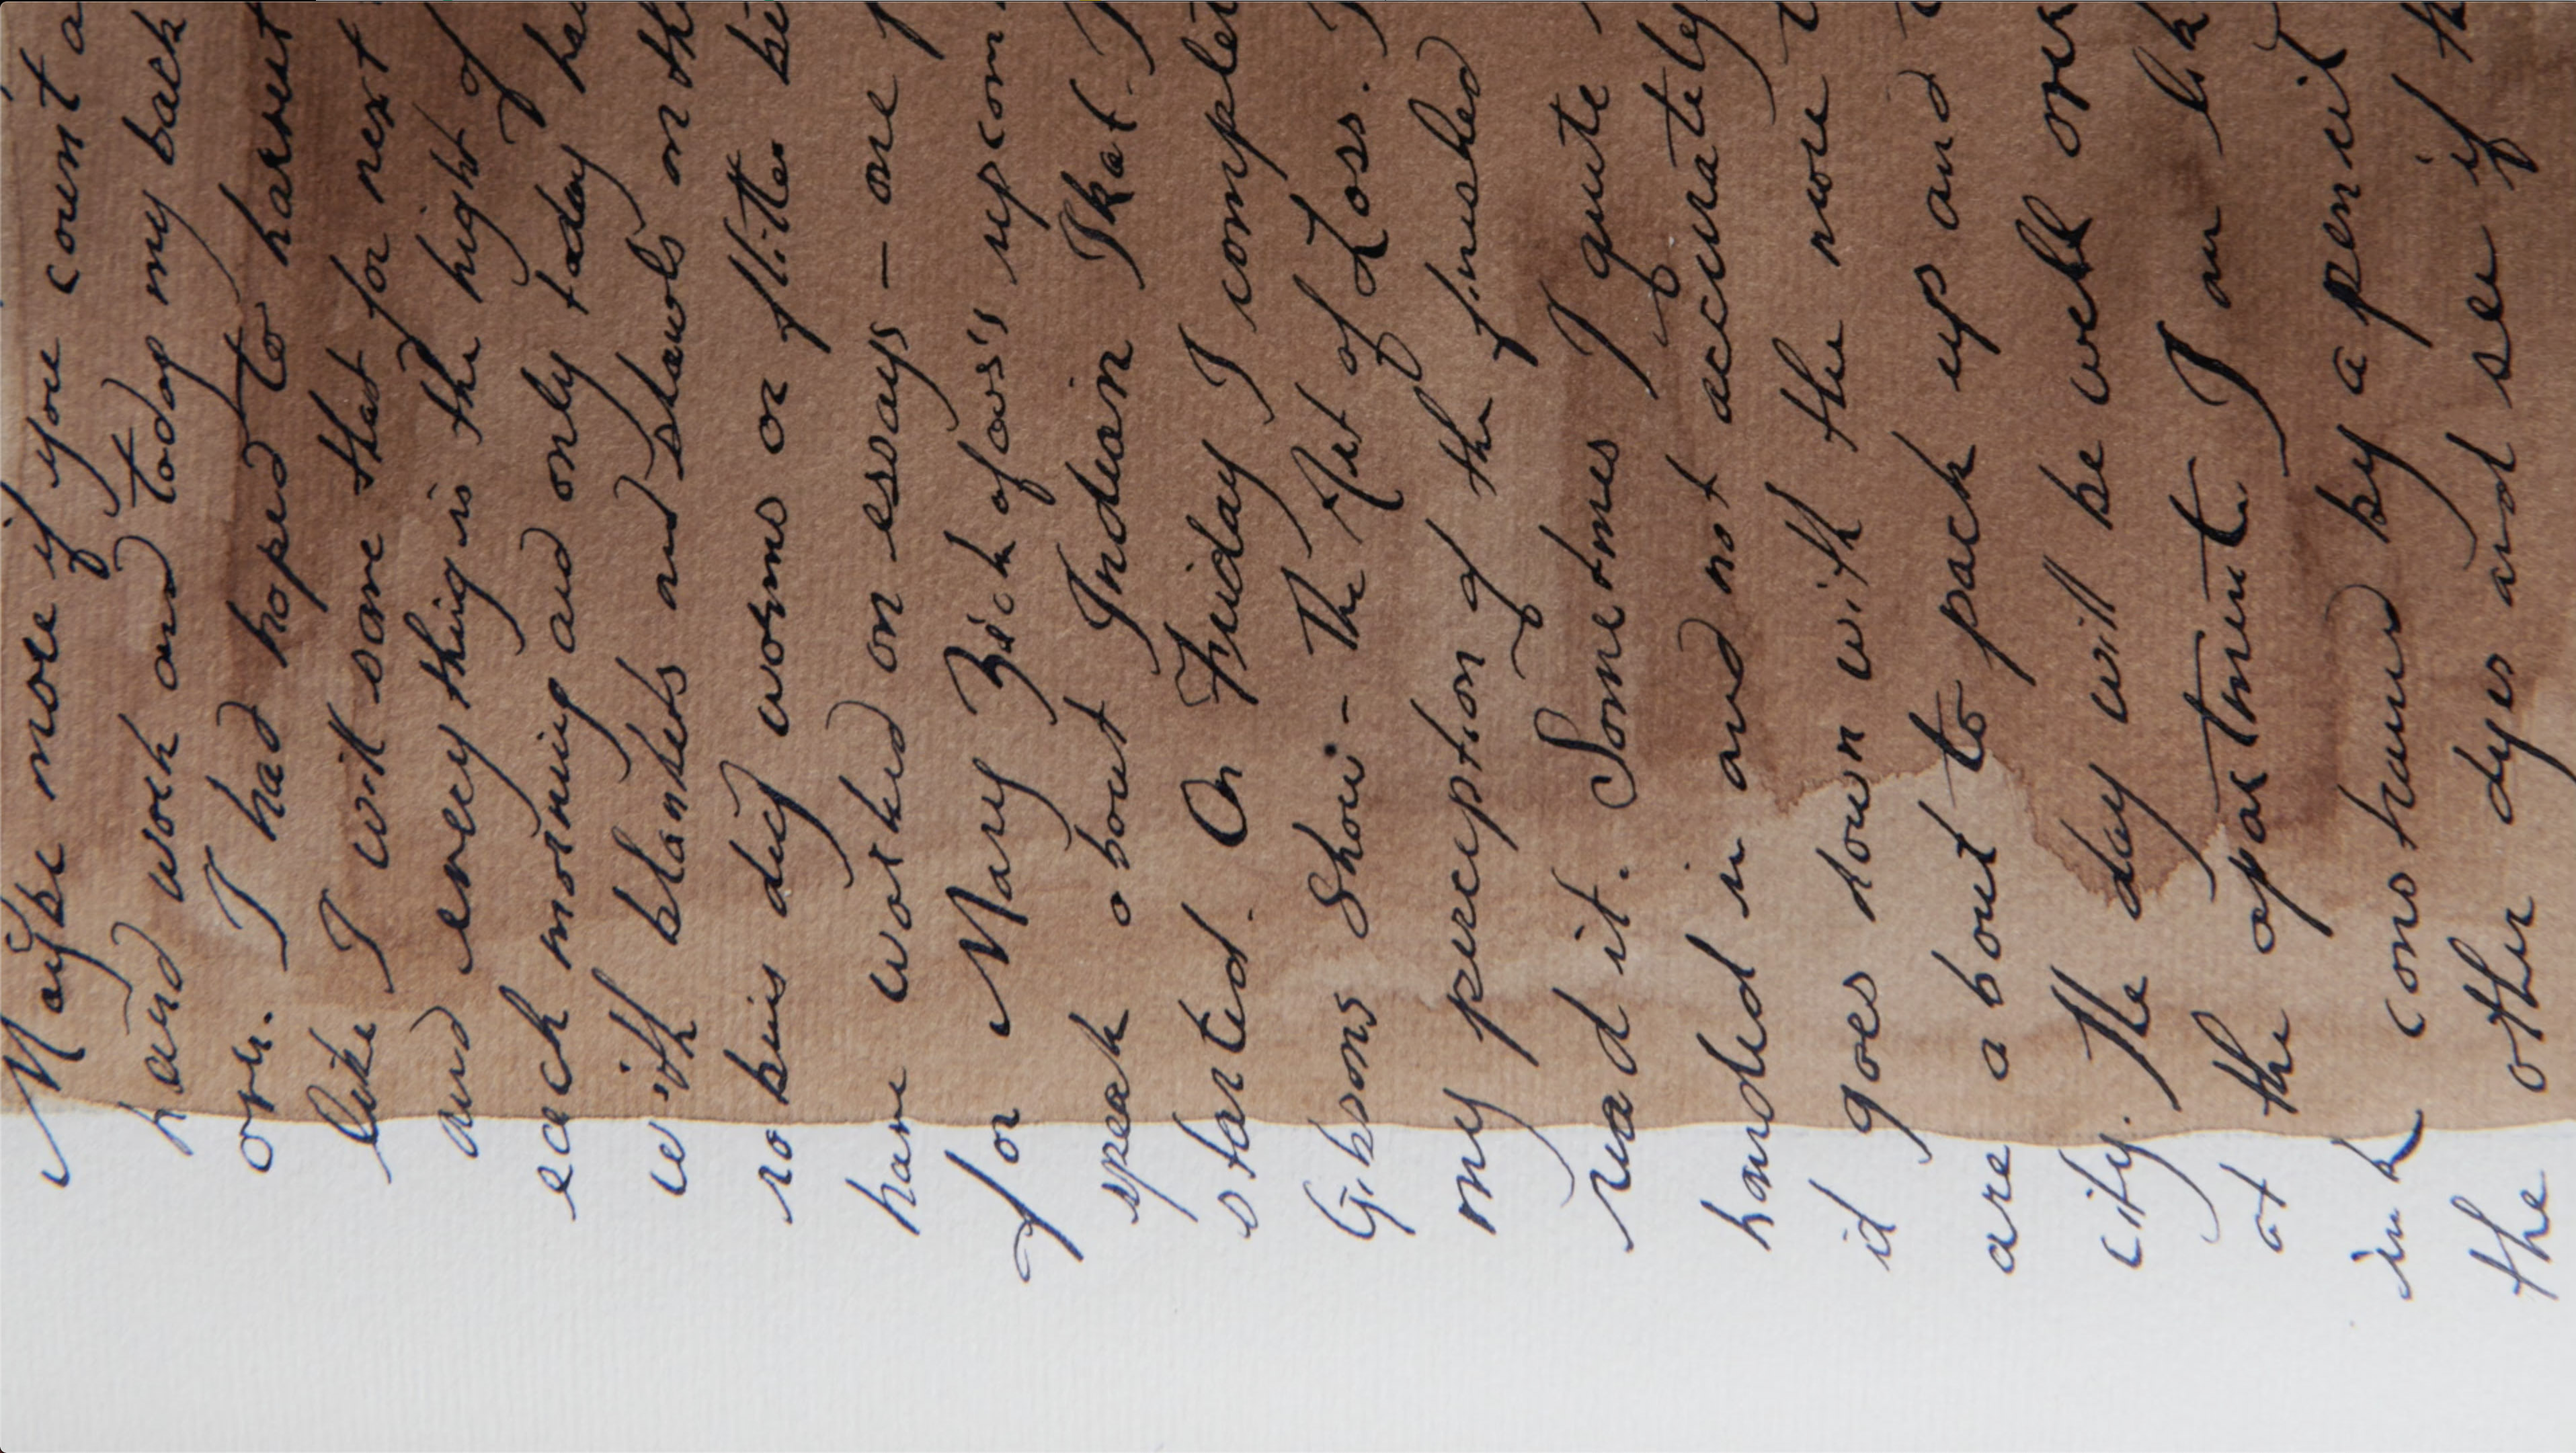 Maybe more if you count a
hard work and today my back
over. I had hoped to harvest
like I will save that for next
and everything is the hight of
each morning and only today ha
with blankets and shawls on the
robins dug worms or flitter be
have worked on essays – one f
for Mary Zicafoos's upcom
speak about Indian Ikat. I
started. On Friday I complet
Gibsons Show – The Art of Loss.
my perception of the finished
read it. Sometimes I quite
handed in and not accurately
it goes down with the now
are about to pack up and
city. The day will be well over
at the apartment. I am lik
ink constrained by a pencil
the other dyes and see if th